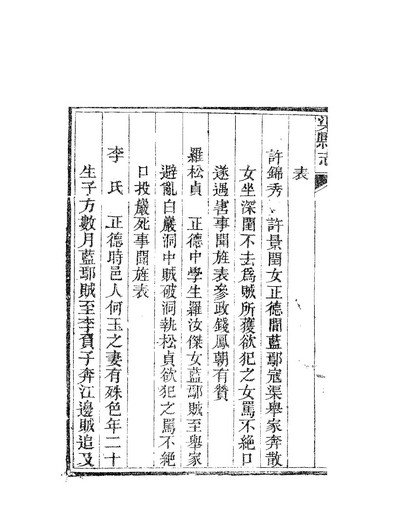 縣志
表
許錦秀 許景閏女正德間藍鄢寇渠舉家奔散
女坐深閨不去爲賊所獲欲犯之女罵不絕口
遂遇害事聞旌表參政錢鳳朝有贊
羅松貞 正德中學生羅汝傑女藍鄢賊至舉家
避亂白巖洞中賊破洞執松貞欲犯之罵不絕
口投巖死事聞旌表
李氏 正德時邑人何玉之妻有殊色年二十
生子方數月藍鄢賊至李負子奔江邊賊追及